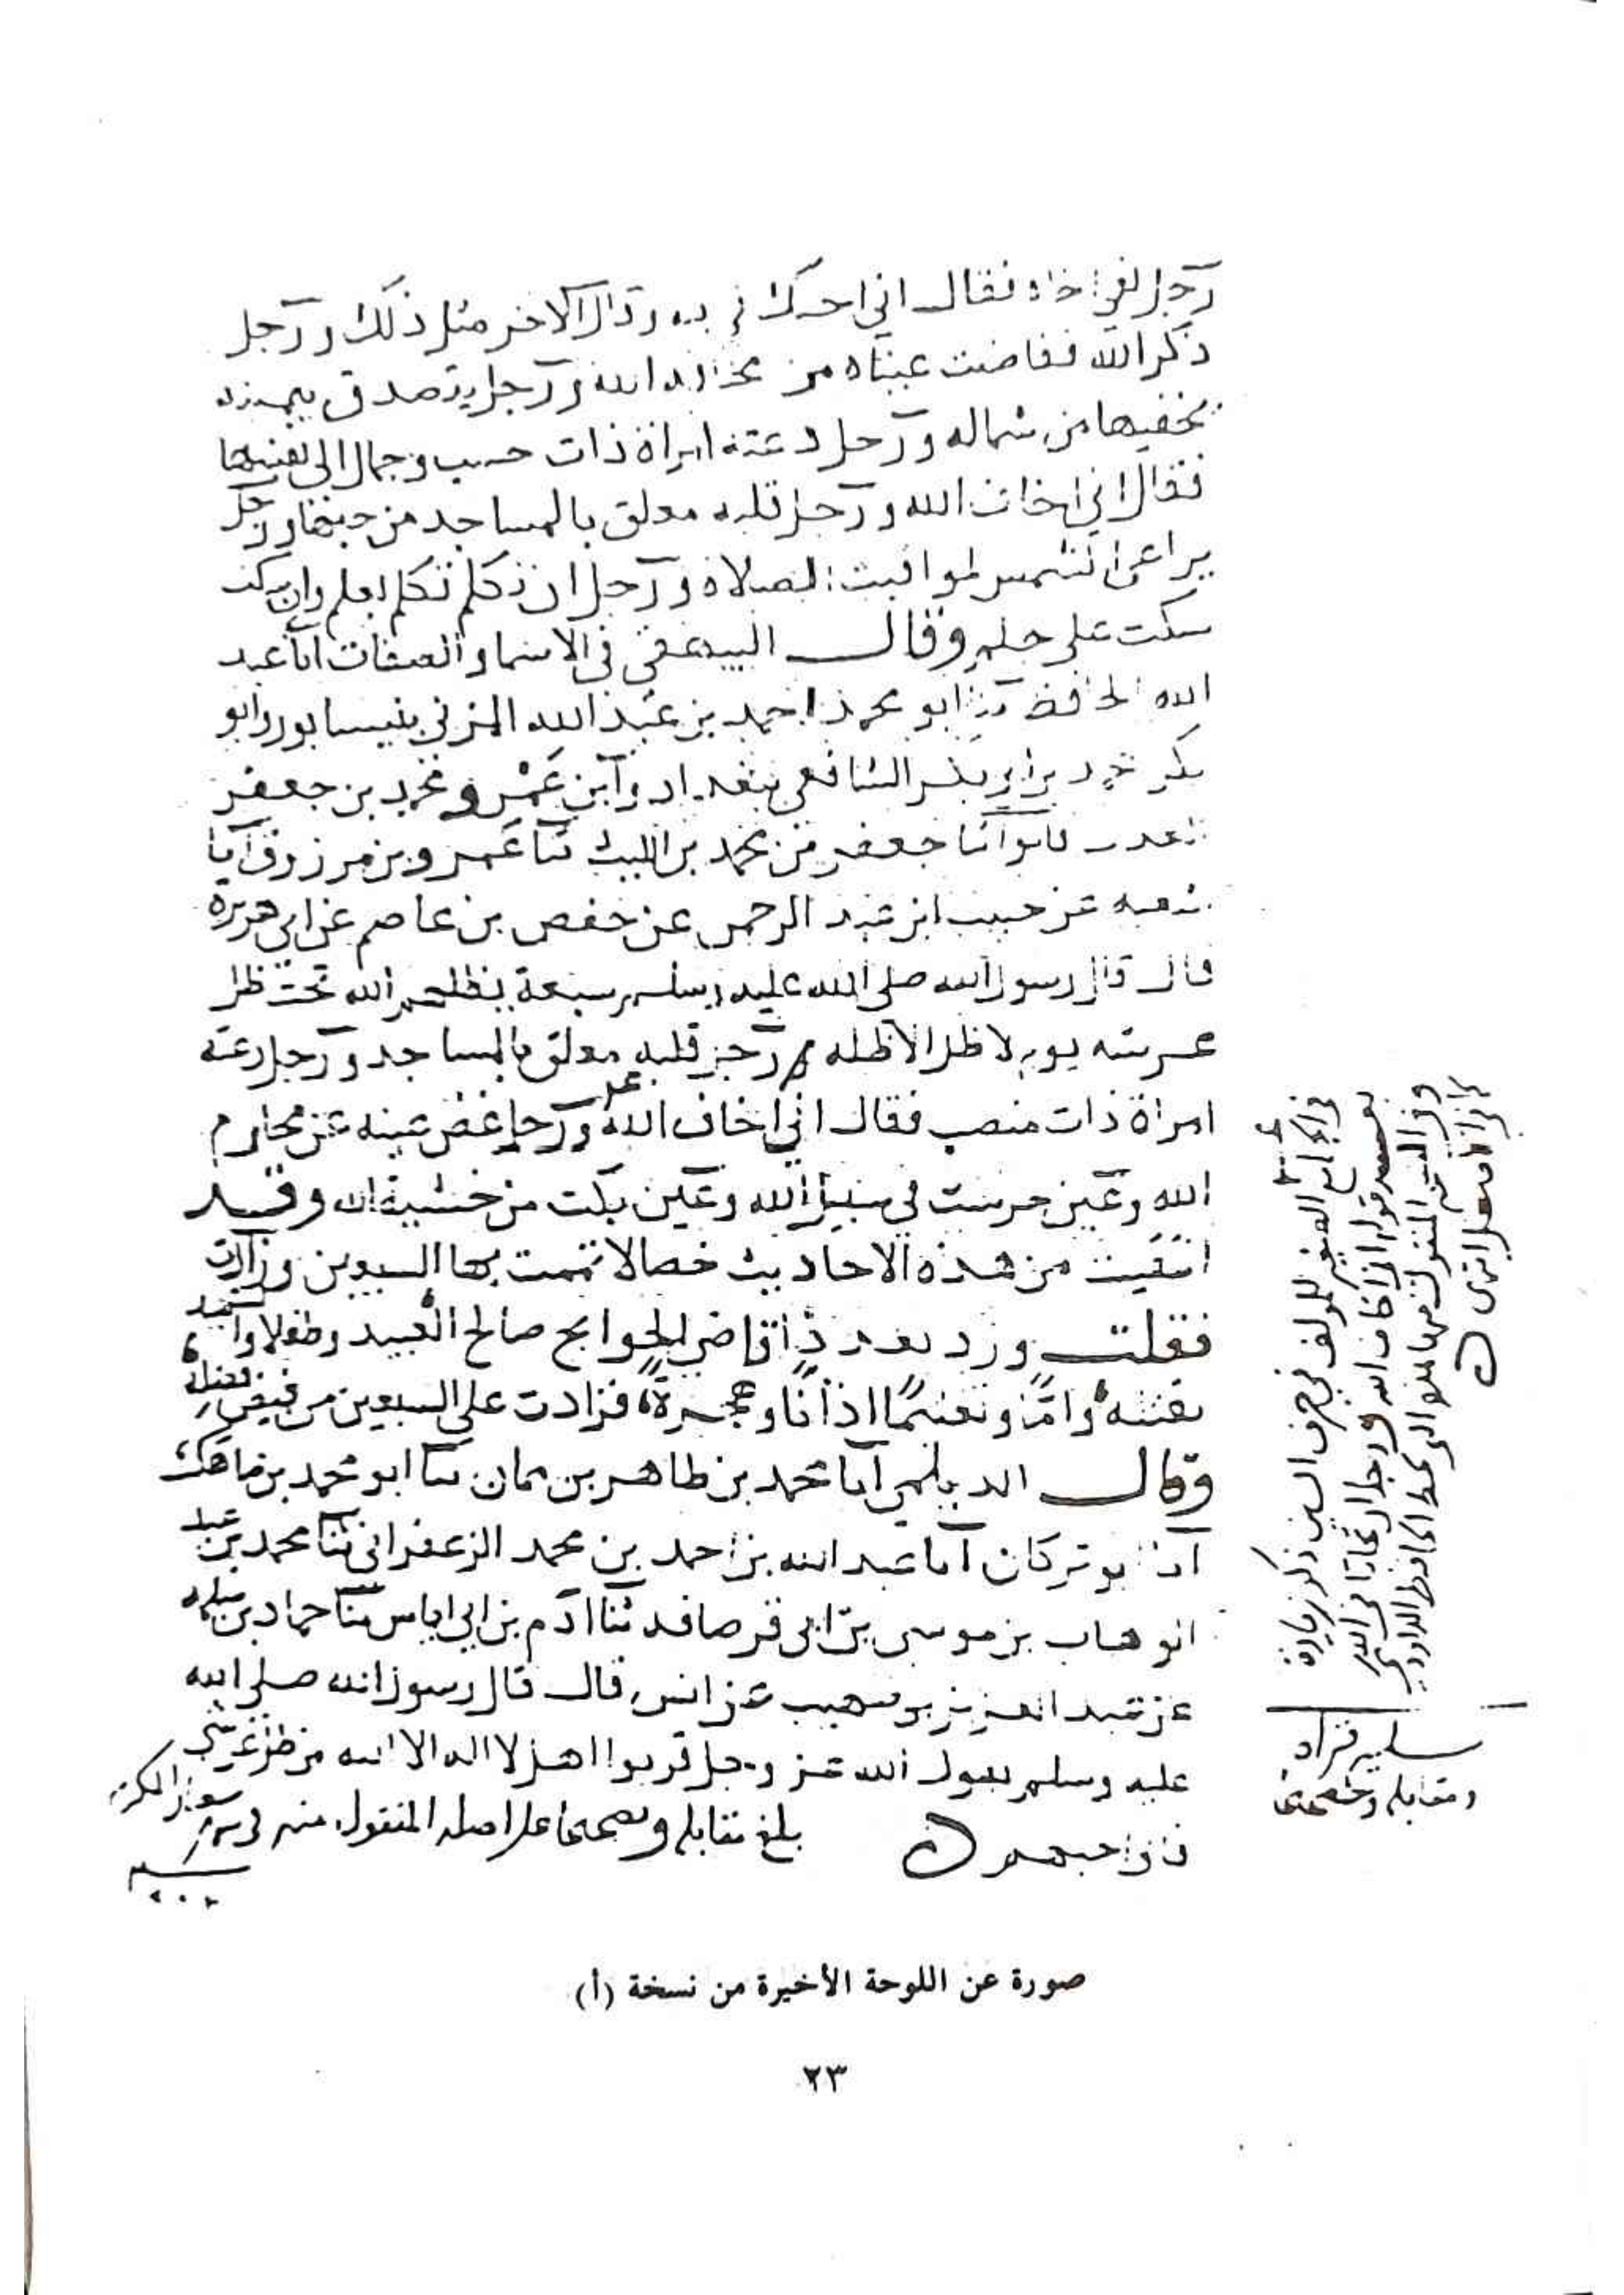 رجل لقي اخاه فقال اني احبك في الله وقال الاخر مثل ذلك ورجل
ذكر الله ففاضت عيناه من مخافة الله ورجل يتصدق بيمينه
يخفيها من شماله ورجل دعته امراة ذات حسب وجمال الى نفسها
فقال اني اخاف الله ورجل قلبه معلق بالمساجد من حبها ورجل
يراعي الشمس لمواقيت الصلاة ورجل ان تكلم تكلم بعلم وان سكت
سكت على حلم وقال البيهقي في الاسما والصفات انا عبد
الله الحافظ ثنا ابو محمد احمد بن عبد الله المزني بنيسابور وابو
بكر محمد بن ابي بكر الشافعي ببغداد وابن عمرو محمد بن جعفر
العدل قالوا ثنا جعفر بن محمد بن الليث ثنا عمرو بن مرزوق انا
شعبه عن حبيب ابن عبد الرحمن عن حفص بن عاصم عن ابي هريرة
قال قال رسول الله صلى الله عليه وسلم سبعة يظلهم الله تحت ظل
عرشه يوم لا ظل الا ظله رجل قلبه معلق بالمساجد ورجل دعته
امراة ذات منصب فقال اني اخاف الله ورجل غض عينه عن محارم
الله وعين حرست في سبيل الله وعين بكت من خشية الله وقد
انتقيت من هذه الاحاديث خصالا تممت بها السبعين وزادت
فقلت وزد بعد ذا قاضي الحوايج صالح العبيد وطفلا
وامًّا اذانًا وهجرةً فزادت على السبعين من فيض فضله
وقال الديلمي انا محمد بن طاهر بن ممان ثنا ابو محمد بن ماهك
انا بو تركان انا عبد الله بن احمد بن محمد الزعفراني ثنا محمد بن عبد
الوهاب بن موسى بن ابي قرصافه ثنا ادم بن ابي اياس ثنا حماد بن سلمه
عن عبد العزيز بن صهيب عن انس قال قال رسول الله صلى الله
عليه وسلم يقول الله عز وجل قربوا اهل لا اله الا الله من ظل عرشي
فاني احبهم
بلغ مقابله وتصحيحا على اصله المنقول منه
في الجامع الصغير للمولف في حرف السين ذكر زيادة
بعد قوله اني اخاف الله ورجلان تحابا في الله
وفي النسخه المنقول منها بخط الحافظ الداودي
ومقابله وتصحيحا
صورة عن اللوحة الأخيرة من نسخة (أ)
٢٣